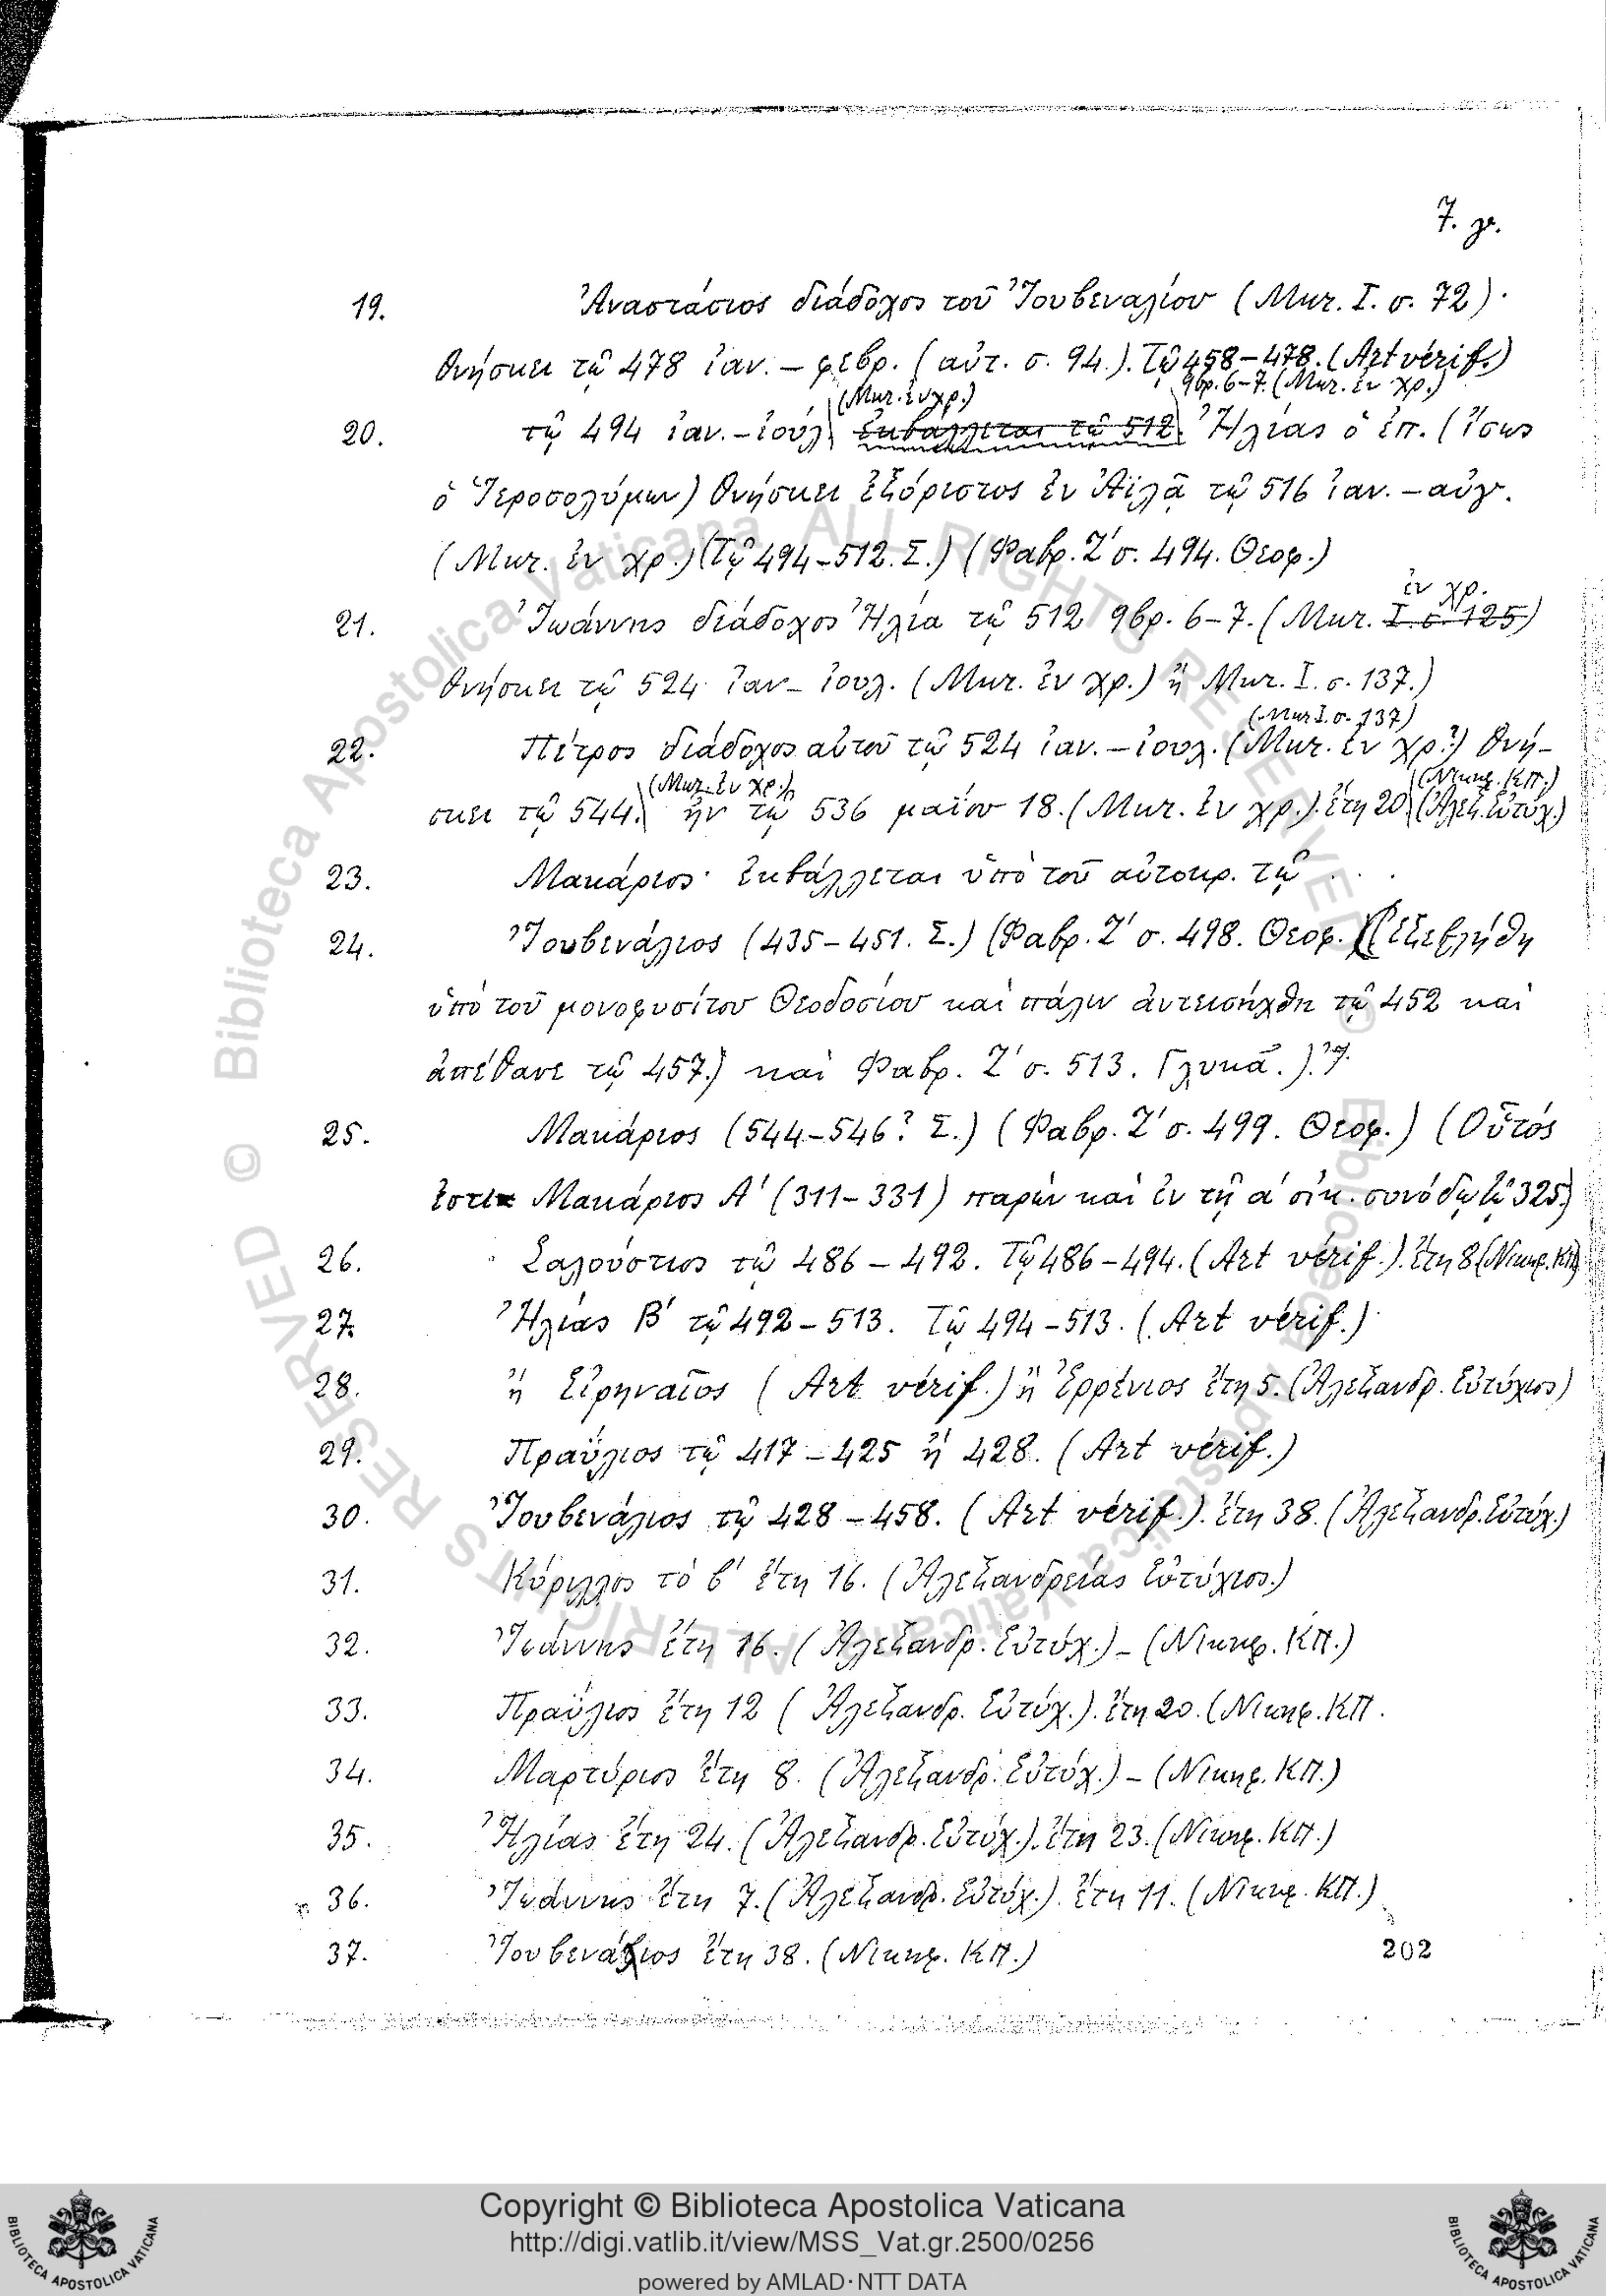 7. γρ.
19. Ἀναστάσιος διάδοχος τοῦ Ἰουβεναλίου (Μικ. Ι. σ. 72).
θνήσκει τῷ 478 ἰαν. – φεβρ. (αὐτ. σ. 94.). Τῷ 458–478. (Art vérif.)
(Μικ. ἐν χρ.) 9βρ. 6–7. (Μικ. ἐν χρ.)
20. τῷ 494 ἰαν. – ἰούλ. ἐκβάλλεται τῷ 512. Ἠλίας ὁ ἐπ. (ἴσως
ὁ Ἱεροσολύμων) θνήσκει ἐξόριστος ἐν Ἀϊλᾷ τῷ 516 ἰαν. – αὐγ.
(Μικ. ἐν χρ.) (Τῷ 494–512. Σ.) (Φαβρ. Ζ' σ. 494. Θεοφ.)
ἐν χρ.
21. Ἰωάννης διάδοχος Ἠλία τῷ 512 9βρ. 6–7. (Μικ. Ι. σ. 125)
θνήσκει τῷ 524 ἰαν – ἰουλ. (Μικ. ἐν χρ.) ἢ Μικ. Ι. σ. 137.)
(Μικ Ι. σ. 137)
22. Πέτρος διάδοχος αὐτοῦ τῷ 524 ἰαν. – ἰουλ. (Μικ. ἐν χρ.?) θνή-
(Μικ. ἐν χρ.) (Νικηφ. ΚΠ.)
σκει τῷ 544. ἦν τῷ 536 μαΐου 18. (Μικ. ἐν χρ.). ἔτη 20 (Ἀλεξ. Εὐτύχ.)
23. Μακάριος· ἐκβάλλεται ὑπὸ τοῦ αὐτοκρ. τῷ . . .
24. Ἰουβενάλιος (435–451. Σ.) (Φαβρ. Ζ' σ. 498. Θεοφ.) (ἐξεβλήθη
ὑπὸ τοῦ μονοφυσίτου Θεοδοσίου καὶ πάλιν ἀντεισήχθη τῷ 452 καὶ
ἀπέθανε τῷ 457.) καὶ Φαβρ. Ζ' σ. 513. Γλυκᾶ.).
25. Μακάριος (544–546? Σ.) (Φαβρ. Ζ' σ. 499. Θεοφ.) (Οὗτός
ἐστι Μακάριος Α' (311–331) παρὼν καὶ ἐν τῇ α' οἰκ. συνόδῳ τῷ 325)
26. Σαλούστιος τῷ 486 – 492. Τῷ 486–494. (Art vérif.). ἔτη 8 (Νικηφ. ΚΠ)
27. Ἠλίας Β' τῷ 492–513. Τῷ 494–513. (Art vérif.)
28. ἢ Εἰρηναῖος (Art vérif.) ἢ Ἑρρένιος ἔτη 5. (Ἀλεξανδρ. Εὐτύχιος)
29. Πραΰλιος τῷ 417–425 ἢ 428. (Art vérif.)
30. Ἰουβενάλιος τῷ 428–458. (Art vérif.). ἔτη 38. (Ἀλεξανδρ. Εὐτύχ.)
31. Κύριλλος τὸ β' ἔτη 16. (Ἀλεξανδρείας Εὐτύχιος.)
32. Ἰωάννης ἔτη 16. (Ἀλεξανδρ. Εὐτύχ.) – (Νικηφ. ΚΠ.)
33. Πραΰλιος ἔτη 12 (Ἀλεξανδρ. Εὐτύχ.). ἔτη 20. (Νικηφ. ΚΠ.
34. Μαρτύριος ἔτη 8. (Ἀλεξανδρ. Εὐτύχ.) – (Νικηφ. ΚΠ.)
35. Ἠλίας ἔτη 24. (Ἀλεξανδρ. Εὐτύχ.). ἔτη 23. (Νικηφ. ΚΠ.)
36. Ἰωάννης ἔτη 7. (Ἀλεξανδρ. Εὐτύχ.). ἔτη 11. (Νικηφ. ΚΠ.)
37. Ἰουβενάλιος ἔτη 38. (Νικηφ. ΚΠ.)
202
© Biblioteca Apostolica Vaticana ALL RIGHTS RESERVED © Biblioteca Apostolica Vaticana ALL RIGHTS RESERVED
Copyright © Biblioteca Apostolica Vaticana
http://digi.vatlib.it/view/MSS_Vat.gr.2500/0256
powered by AMLAD·NTT DATA
BIBLIOTECA APOSTOLICA VATICANA
BIBLIOTECA APOSTOLICA VATICANA